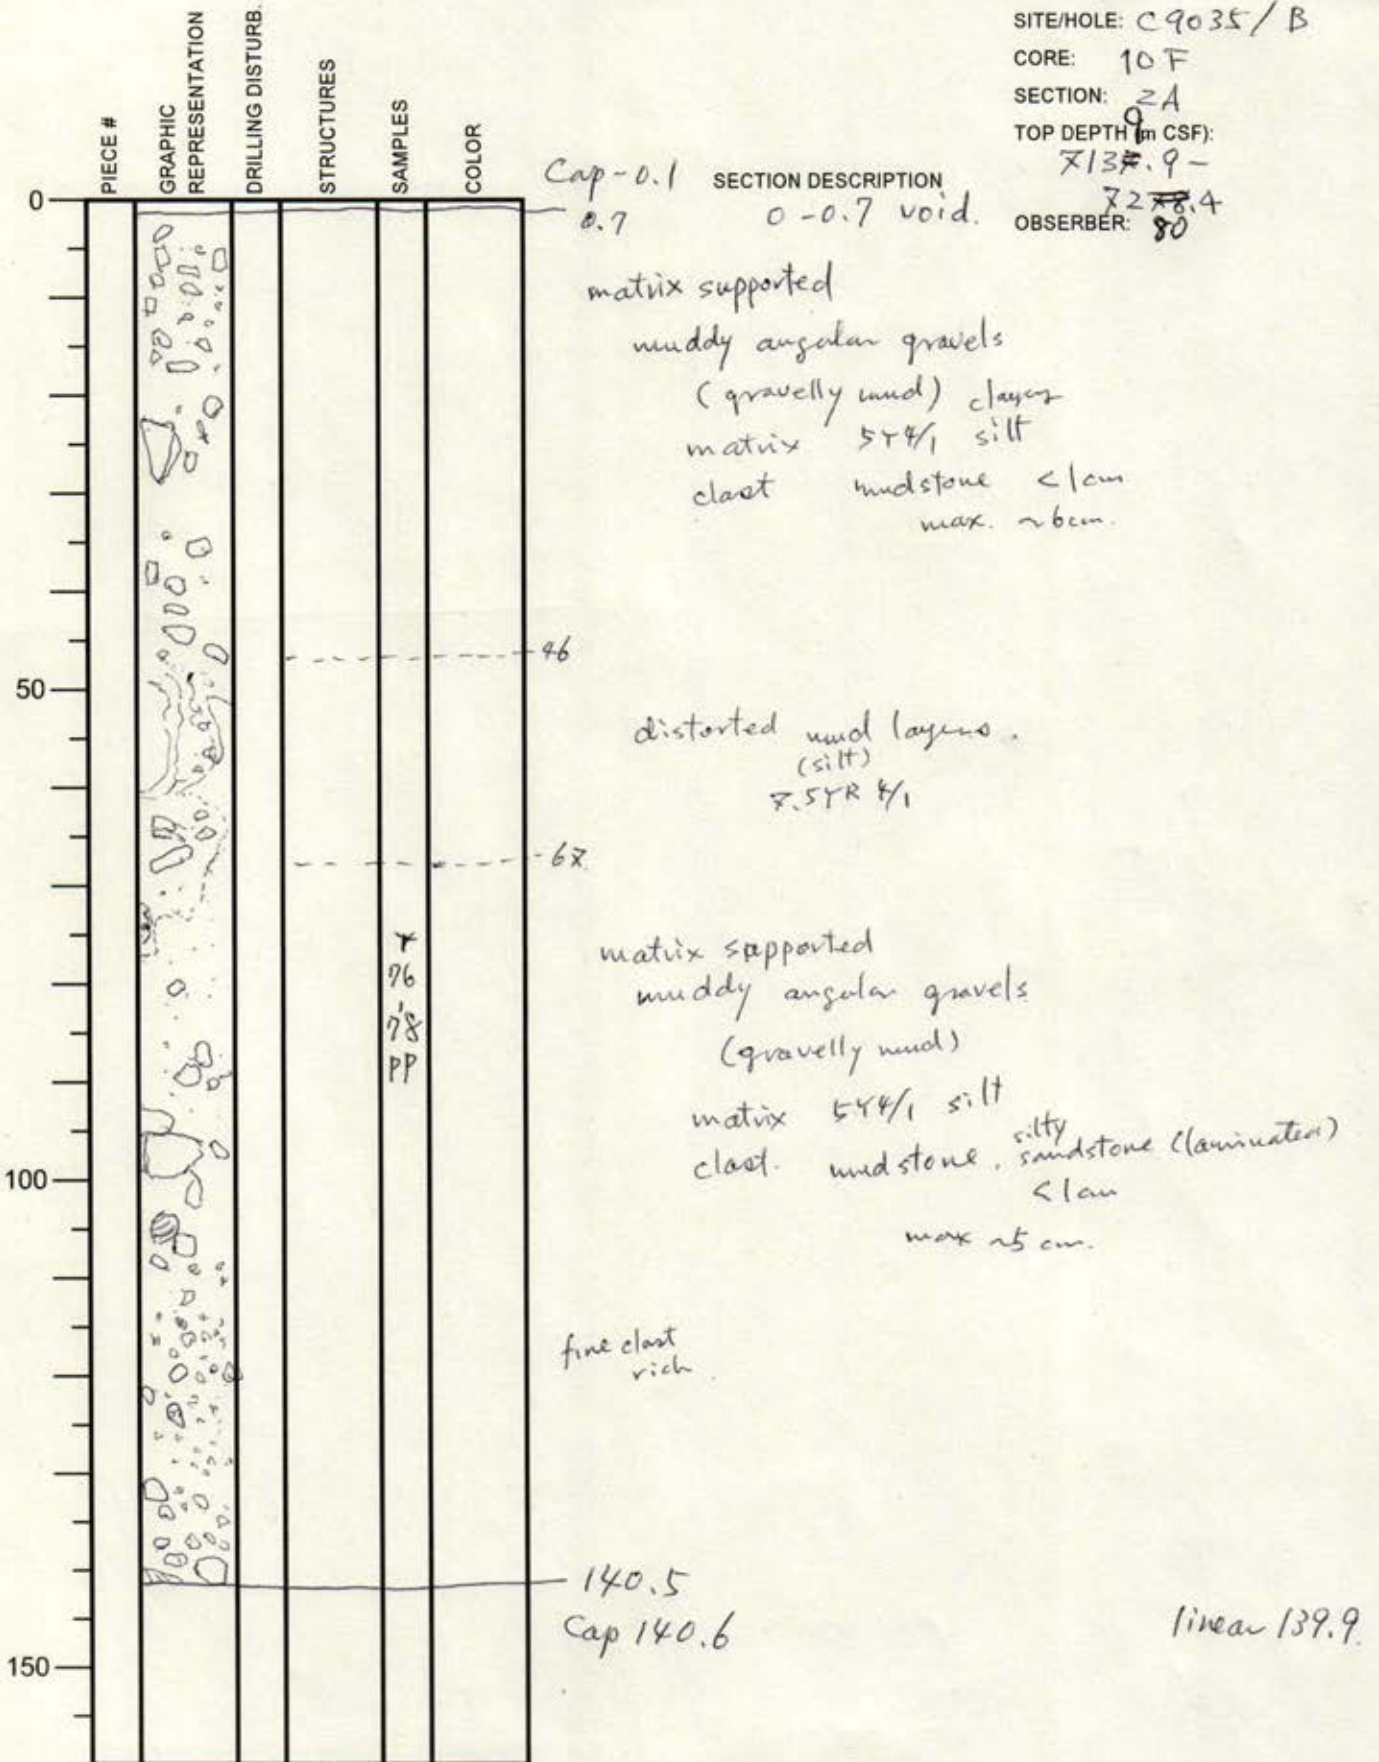 SITE/HOLE: C9035/B
CORE: 10F
SECTION: 2A
TOP DEPTH (m CSF):
OBSERBER:
PIECE #
GRAPHIC REPRESENTATION
DRILLING DISTURB.
STRUCTURES
SAMPLES
COLOR
Cap-0.1
SECTION DESCRIPTION
0
0.7
0-0.7 void.
matrix supported
muddy angular gravels
(gravelly mud) clayey
matrix 5Y4/1 silt
clast mudstone <1cm
max. ~6cm.
46
50
distorted mud layers.
(silt)
7.5YR 4/1
67
76
78
PP
matrix supported
muddy angular gravels
(gravelly mud)
matrix 5Y4/1 silt
silty
clast. mudstone, sandstone (laminated)
<1cm
100
max ~5 cm.
fine clast
rich
140.5
Cap 140.6
linear 139.9
150